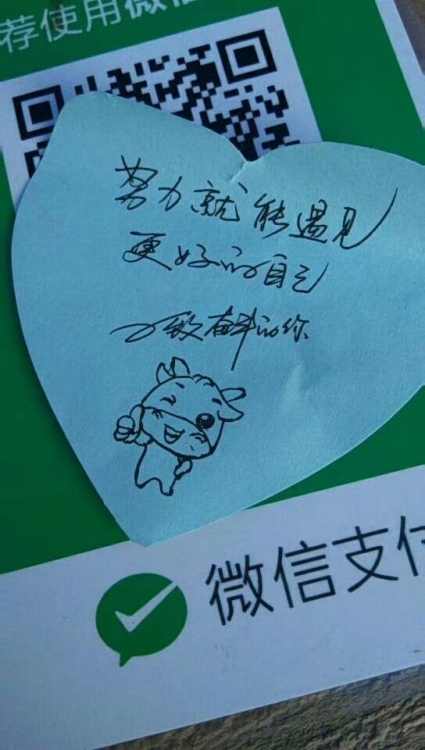 荐使用微信
努力就能遇见
更好的自己
致奋斗的你
微信支付